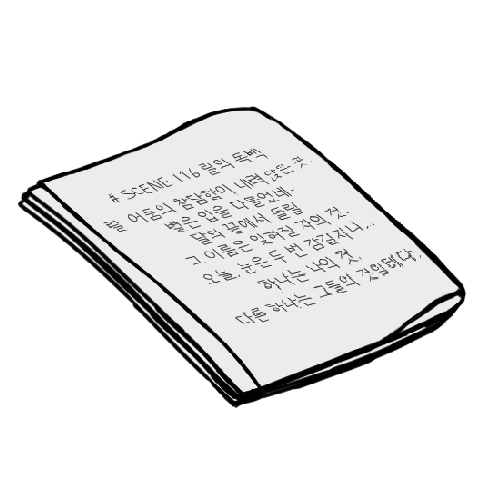 # SCENE 116 릴의 독백
릴 어둠의 참담함이 내려 앉은 곳.
벽은 입을 다물었네.
달의 끝에서 들림
그 이름은 잊혀질 자의 것.
오늘, 눈은 두 번 감길지니...
하나는 나의 것,
다른 하나는 그들의 것일 테다.